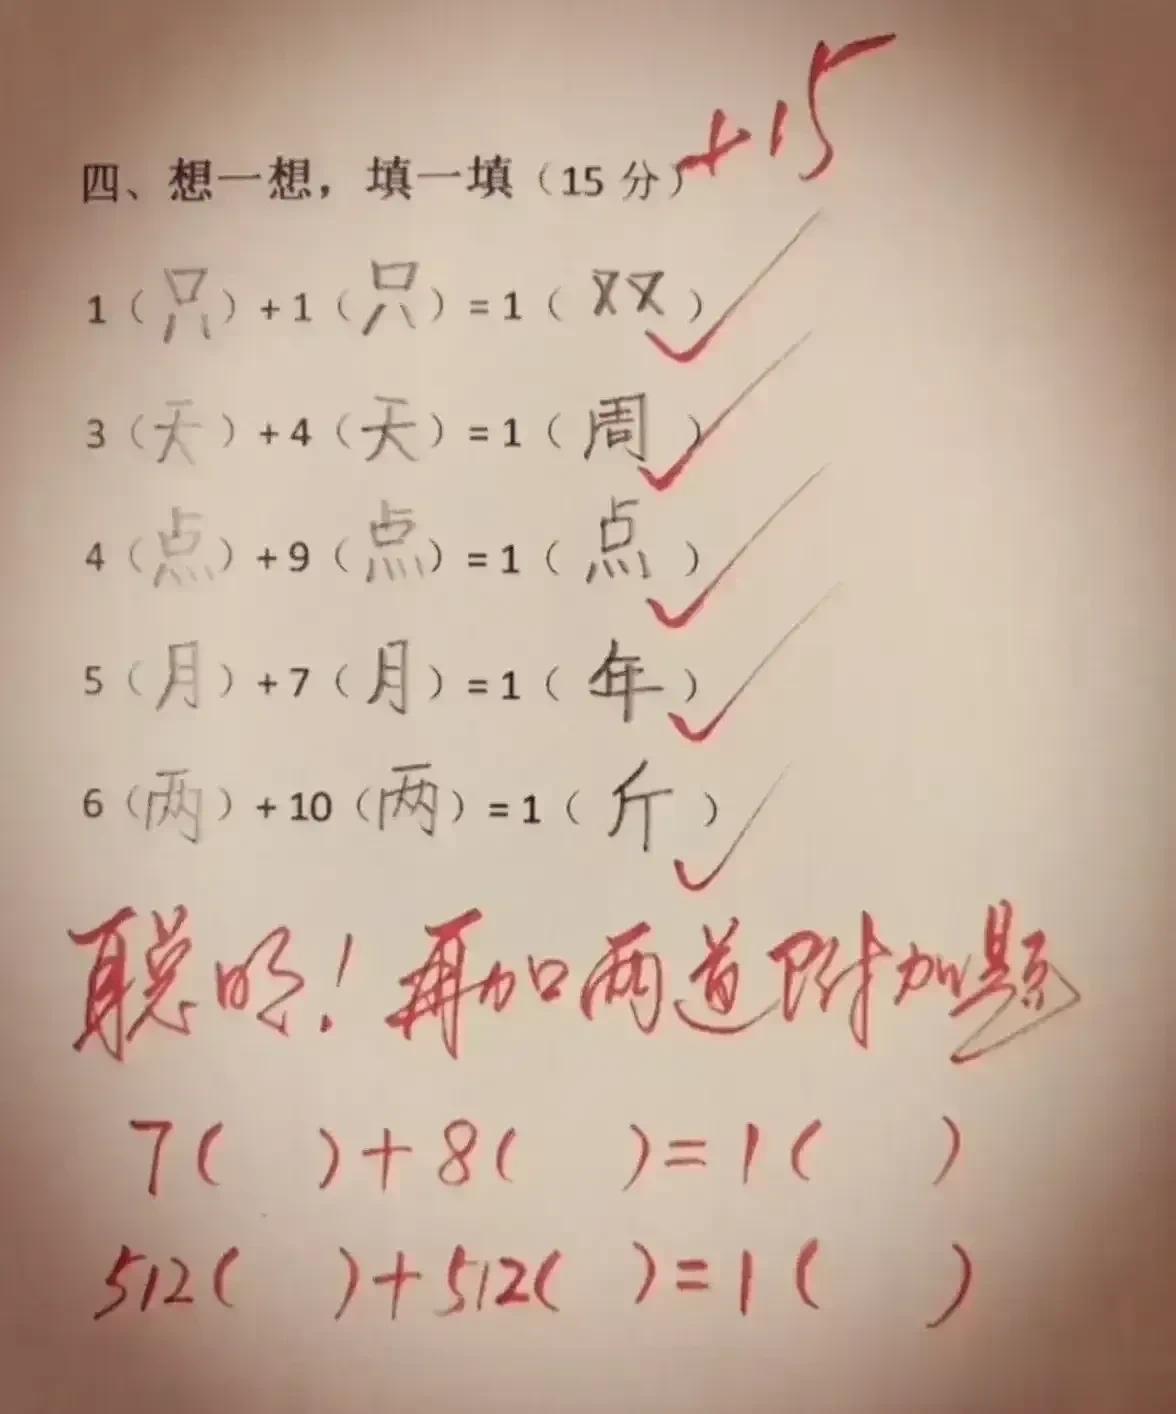 四、想一想，填一填（15 分）+15
1（只）+1（只）=1（双）
3（天）+4（天）=1（周）
4（点）+9（点）=1（点）
5（月）+7（月）=1（年）
6（两）+10（两）=1（斤）
聪明！再加两道附加题
7(  )+8(  )=1(  )
512(  )+512(  )=1(  )